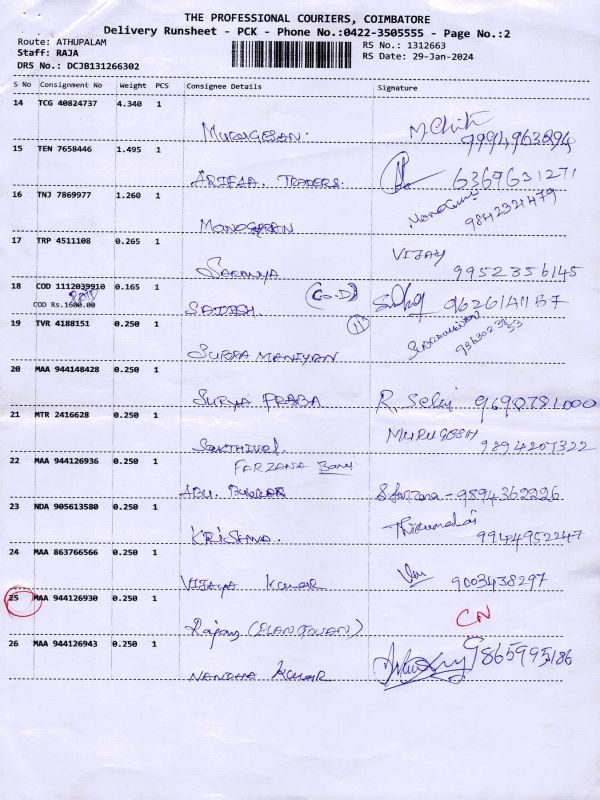 THE PROFESSIONAL COURIERS, COIMBATORE
Delivery Runsheet - PCK - Phone No.:0422-3505555 - Page No.:2
Route: ATHUPALAM
RS No.: 1312663
Staff: RAJA
RS Date: 29-Jan-2024
DRS No.: DCJB131266302
S No Consignment No Weight PCS Consignee Details Signature
14 TCG 40824737 4.340 1
MURUGESAN. M.Chit
15 TEN 7658446 1.495 1
TRADERS. 6369631271
16 TNJ 7869977 1.260 1
9842321479
17 TRP 4511108 0.265 1 VIJAY
SARANYA 9952356145
18 COD 1112039910 0.165 1 (C.O.D)
COD Rs.1600.00
SATISH.
19 TVR 4188151 0.250 1 11
SUBRA MANIYAN
20 MAA 944148428 0.250 1
SURYA PRABA R. Selvi 9690781000
21 MTR 2416628 0.250 1 MURUGESH
Sakthivel. 9894207322
22 MAA 944126936 0.250 1 FARZANA Banu
ABU BUCKAR S.farzana - 9894362226
23 NDA 905613580 0.250 1
KRISHNA. 9944952247
24 MAA 863766566 0.250 1
VIJAYA KUMAR 9003438297
25 MAA 944126930 0.250 1 CN
(ELANGOVAN)
26 MAA 944126943 0.250 1 9865995186
NANDHA KUMAR